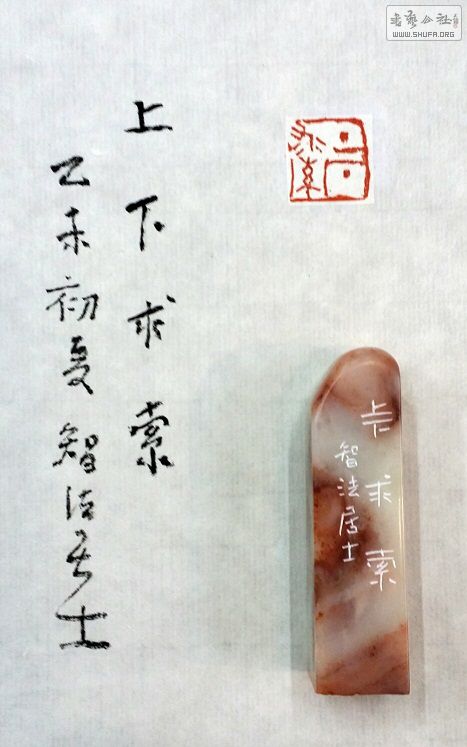 上下求索
乙未初夏 智法居士
上下求索
上下求索
智法居士
书艺公社
WWW.SHUFA.ORG